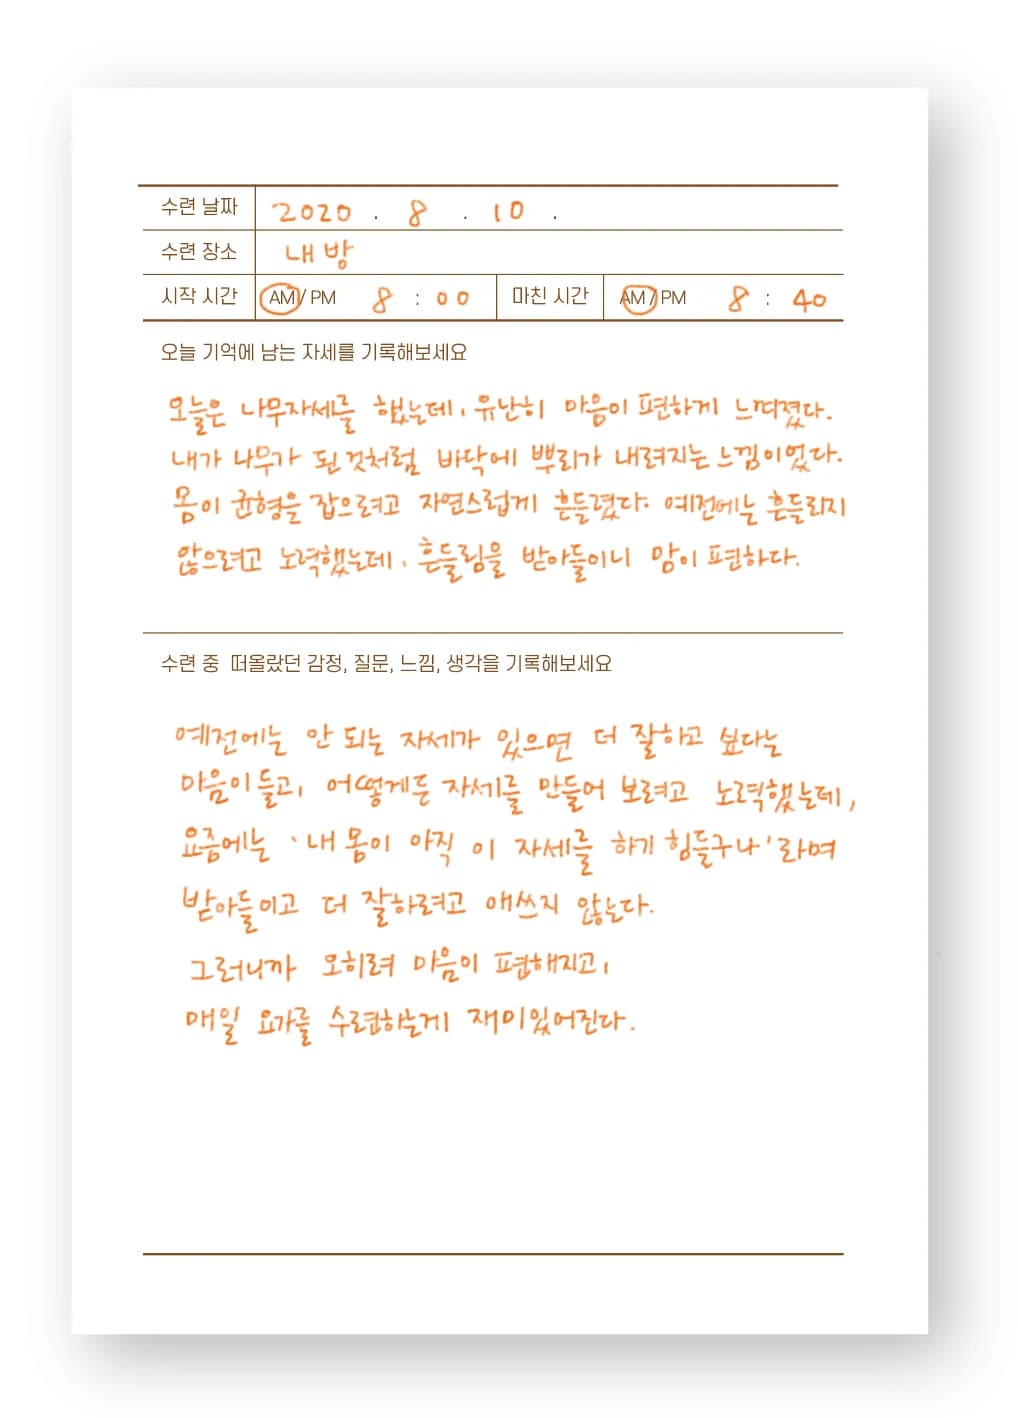 수련 날짜 2020 . 8 . 10 .
수련 장소 내 방
시작 시간 AM / PM 8 : 00 마친 시간 AM / PM 8 : 40
오늘 기억에 남는 자세를 기록해보세요
오늘은 나무자세를 했는데, 유난히 마음이 편하게 느껴졌다.
내가 나무가 된 것처럼 바닥에 뿌리가 내려지는 느낌이었다.
몸이 균형을 잡으려고 자연스럽게 흔들렸다. 예전에는 흔들리지
않으려고 노력했는데, 흔들림을 받아들이니 맘이 편하다.
수련 중 떠올랐던 감정, 질문, 느낌, 생각을 기록해보세요
예전에는 안 되는 자세가 있으면 더 잘하고 싶다는
마음이 들고, 어떻게든 자세를 만들어 보려고 노력했는데,
요즘에는 '내 몸이 아직 이 자세를 하기 힘들구나'라며
받아들이고 더 잘하려고 애쓰지 않는다.
그러니까 오히려 마음이 편해지고,
매일 요가를 수련하는게 재미있어진다.